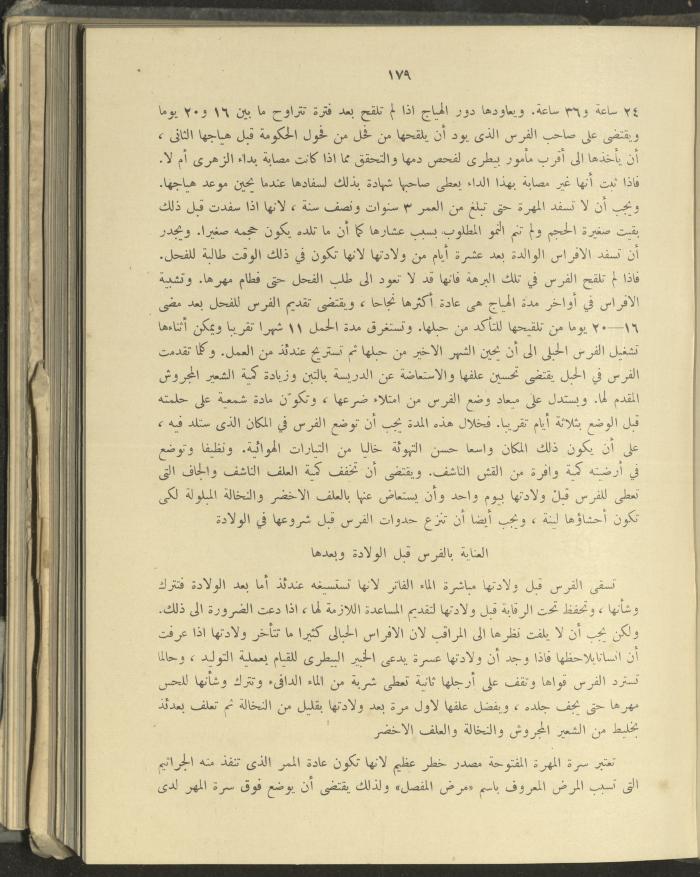 ١٧٩
٢٤ ساعة و٣٦ ساعة. ويعاودها دور الهياج اذا لم تلقح بعد فترة تتراوح ما بين ١٦ و٢٠ يوما
ويقتضى على صاحب الفرس الذى يود أن يلقحها من فحل من فحول الحكومة قبل هياجها الثانى ،
أن يأخذها الى أقرب مأمور بيطرى لفحص دمها والتحقق مما اذا كانت مصابة بداء الزهرى أم لا.
فاذا ثبت أنها غير مصابة بهذا الداء يعطى صاحبها شهادة بذلك لسفادها عندما يحين موعد هياجها.
ويجب أن لا تسفد المهرة حتى تبلغ من العمر ٣ سنوات ونصف سنة ، لانها اذا سفدت قبل ذلك
بقيت صغيرة الحجم ولم تنم النمو المطلوب بسبب عشارها كما أن ما تلده يكون حجمه صغيرا. ويجدر
أن تسفد الافراس الوالدة بعد عشرة أيام من ولادتها لانها تكون في ذلك الوقت طالبة للفحل.
فاذا لم تلقح الفرس في تلك البرهة فانها قد لا تعود الى طلب الفحل حتى فطام مهرها. وتشبية
الافراس في أواخر مدة الهياج هى عادة أكثرها نجاحا ، ويقتضى تقديم الفرس للفحل بعد مضى
١٦—٢٠ يوما من تلقيحها للتأكد من حبلها. وتستغرق مدة الحمل ١١ شهرا تقريبا ويمكن أثناءها
تشغيل الفرس الحبلى الى أن يحين الشهر الاخير من حبلها ثم تستريح عندئذ من العمل. وكلما تقدمت
الفرس في الحبل يقتضى تحسين علفها والاستعاضة عن الدريسة بالتبن وزيادة كمية الشعير المجروش
المقدم لها. ويستدل على ميعاد وضع الفرس من امتلاء ضرعها ، وتكوّن مادة شمعية على حلمته
قبل الوضع بثلاثة أيام تقريبا. فخلال هذه المدة يجب أن توضع الفرس في المكان الذى ستلد فيه ،
على أن يكون ذلك المكان واسعا حسن التهوئة خاليا من التيارات الهوائية. ونظيفا وتوضع
في أرضيته كمية وافرة من القش الناشف. ويقتضى أن تخفف كمية العلف الناشف والجاف التى
تعطى للفرس قبل ولادتها بيوم واحد وأن يستعاض عنها بالعلف الاخضر والنخالة المبلولة لكى
تكون أحشاؤها لينة ، ويجب أيضا أن تنزع حدوات الفرس قبل شروعها في الولادة
العناية بالفرس قبل الولادة وبعدها
تسقى الفرس قبل ولادتها مباشرة الماء الفاتر لانها تستسيغه عندئذ أما بعد الولادة فتترك
وشأنها ، وتحفظ تحت الرقابة قبل ولادتها لتقديم المساعدة اللازمة لها ، اذا دعت الضرورة الى ذلك.
ولكن يجب أن لا يلفت نظرها الى المراقب لان الافراس الحبالى كثيرا ما تتأخر ولادتها اذا عرفت
أن انسانايلاحظها فاذا وجد أن ولادتها عسرة يدعى الخبير البيطرى للقيام بعملية التوليد ، وحالما
تسترد الفرس قواها وتقف على أرجلها ثانية تعطى شربة من الماء الدافىء وتترك وشأنها للحس
مهرها حتى يجف جلده ، ويفضل علفها لاول مرة بعد ولادتها بقليل من النخالة ثم تعلف بعدئذ
بخليط من الشعير المجروش والنخالة والعلف الاخضر
تعتبر سرة المهرة المفتوحة مصدر خطر عظيم لانها تكون عادة الممر الذى تنفذ منه الجراثيم
التى تسبب المرض المعروف باسم «مرض المفصل» ولذلك يقتضى أن يوضع فوق سرة المهر لدى